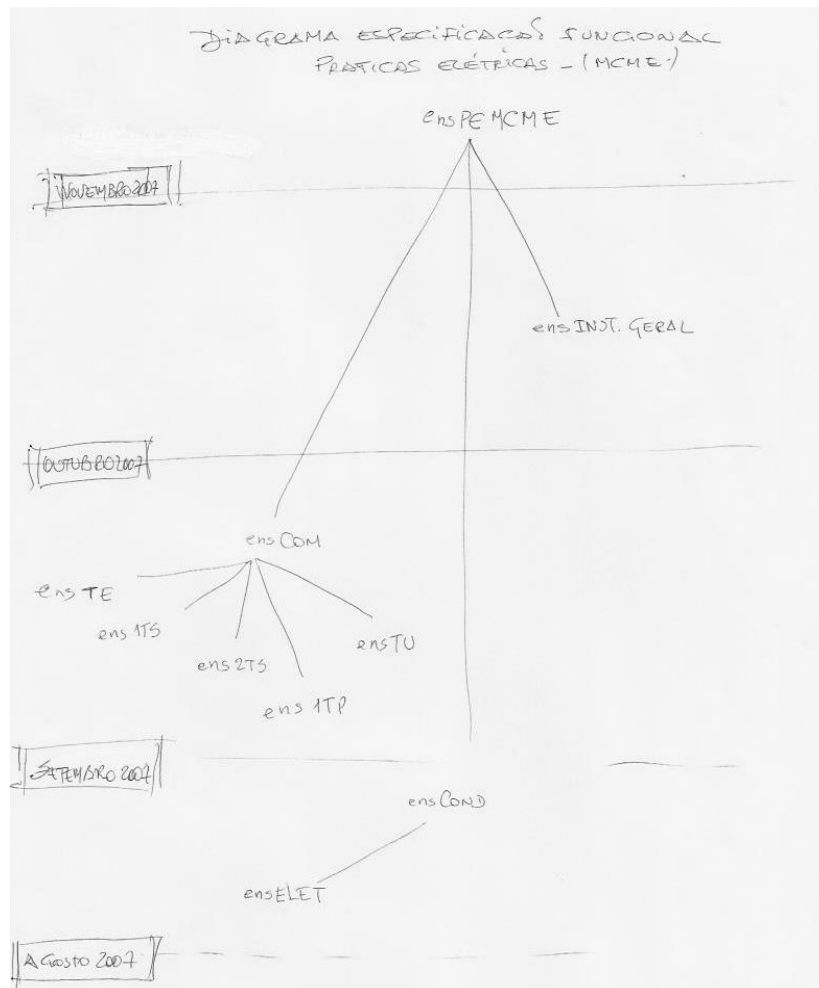 DIAGRAMA ESPECIFICAÇÃO FUNCIONAL
PRATICAS ELÉTRICAS - (MCME.)
ens PE MCME
NOVEMBRO 2007
ens INST. GERAL
OUTUBRO 2007
ens COM
ens TE
ens 1TS
ens 2TS
ens TU
ens 1TP
SETEMBRO 2007
ens COND
ens ELET
AGOSTO 2007